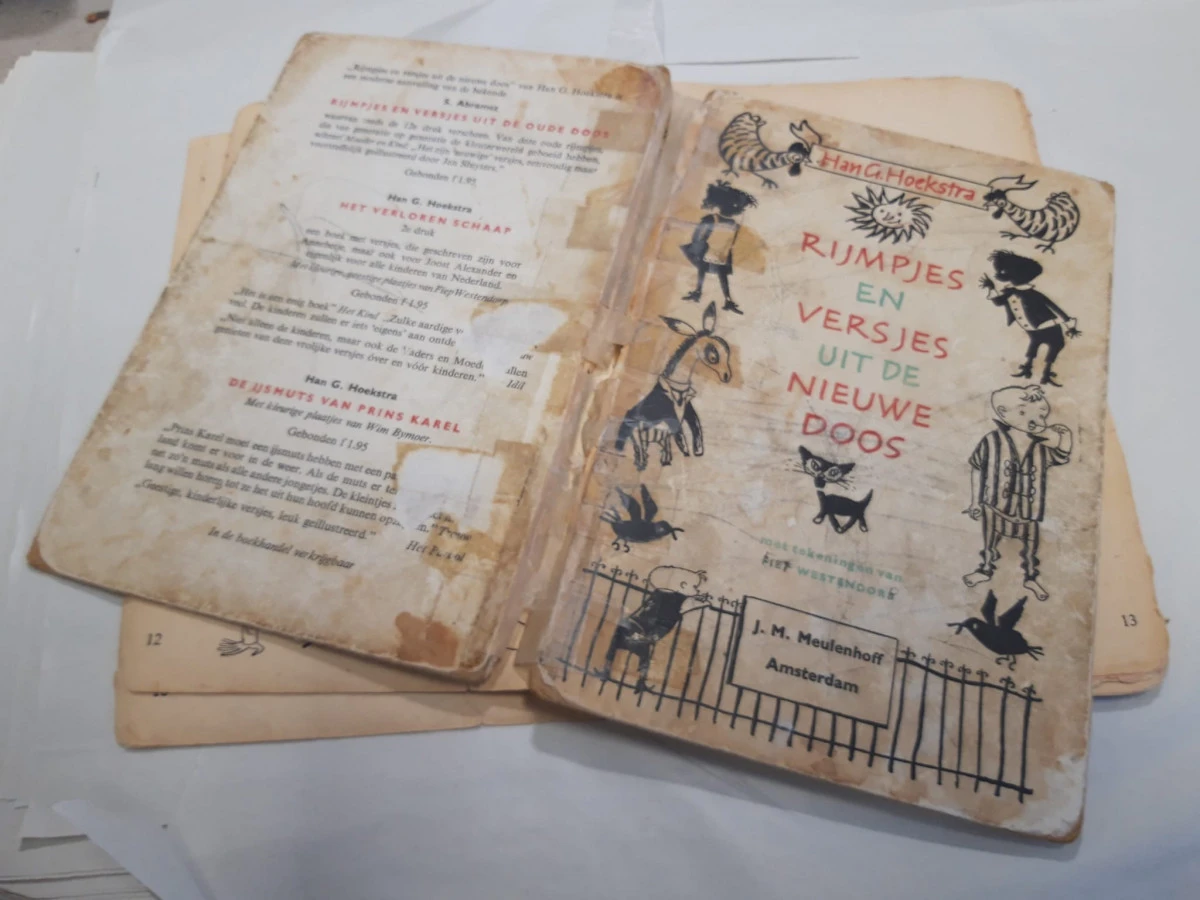 „Rijmpjes en versjes uit de nieuwe doos" van Han G. Hoekstra is
een moderne aanvulling van de bekende
S. Abramsz
RIJMPJES EN VERSJES UIT DE OUDE DOOS
waarvan reeds de 12e druk verscheen. Van deze oude rijmpjes,
die van generatie op generatie de kleuterwereld geboeid hebben,
schreef Moeder en Kind: „Het zijn 'eeuwige' versjes, eenvoudig maar
voortreffelijk geïllustreerd door Jan Rheyters."
Gebonden f 1.95
Han G. Hoekstra
HET VERLOREN SCHAAP
2e druk
een boek met versjes, die geschreven zijn voor
Annebetje, maar ook voor Joost Alexander en
eigenlijk voor alle kinderen van Nederland.
Met kleurige, geestige plaatjes van Fiep Westendorp
Gebonden f 4.95
„Het is een enig boek" Het Kind „Zulke aardige v
vrul. De kinderen zullen er iets 'eigens' aan ontde
„Niet alleen de kinderen, maar ook de Vaders en Moed allen
genieten van deze vrolijke versjes óver en vóór kinderen." Idil
Han G. Hoekstra
DE IJSMUTS VAN PRINS KAREL
Met kleurige plaatjes van Wim Bijmoer.
Gebonden f 1.95
„Prins Karel moet een ijsmuts hebben met een pa
land komt er voor in de weer. Als de muts er te
net zo'n muts als alle andere jongetjes. De kleintjes
lang willen horen tot ze het uit hun hoofd kunnen op m." Trouw
„Geestige, kinderlijke versjes, leuk geïllustreerd." Het P
In de boekhandel verkrijgbaar
12
Han G. Hoekstra
RIJMPJES
EN
VERSJES
UIT DE
NIEUWE
DOOS
met tekeningen van
FIEP WESTENDORP
J. M. Meulenhoff
Amsterdam
13